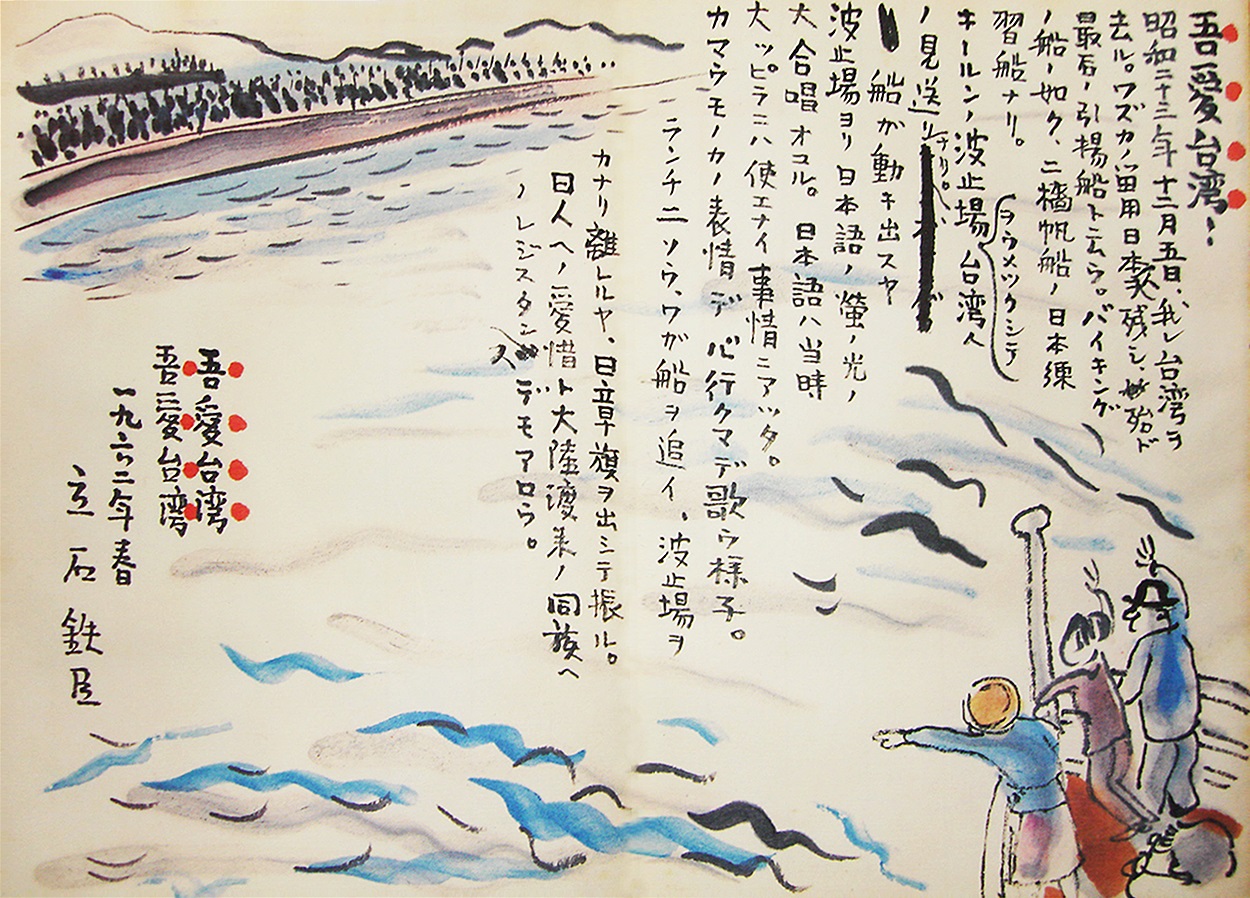 吾愛台湾!
昭和二十三年十二月五日、我レ台湾ヲ
去ル。ワズカノ留用日本人残シ、殆ド
最后ノ引揚船ト云ウ。バイキング
ノ船ノ如ク、二檣帆船ノ日本練
習船ナリ。
キールンノ波止場、台湾人
(ヲウメツクシテ)
ノ見送リナリ。
船が動キ出スヤ
波止場ヨリ日本語ノ螢ノ光ノ
大合唱オコル。日本語ハ当時
大ッピラニハ使エナイ事情ニアッタ。
カマウモノカノ表情デ心行クマデ歌ウ様子。
ランチ二ソウ、ワガ船ヲ追イ、波止場ヲ
カナリ離レルヤ、日章旗ヲ出シテ振ル。
日人ヘノ愛惜ト大陸渡来ノ同族ヘ
ノレジスタンスデモアロウ。
吾愛台湾
吾愛台湾
一九六二年春
立石鉄臣